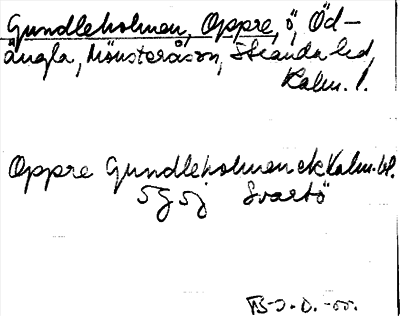 Gundleholmen, Oppre, ö, Öd-
ängla, Mönsterås sn, Stranda hd,
Kalm. l.
Oppre Gundleholmen ek Kalm. bl.
5G5j Svartö